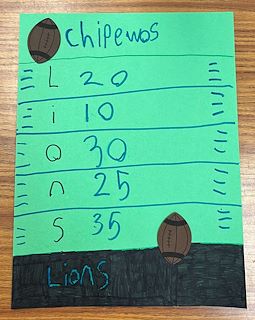 Chipewos
L 20
i 10
O 30
n 25
S 35
Lions